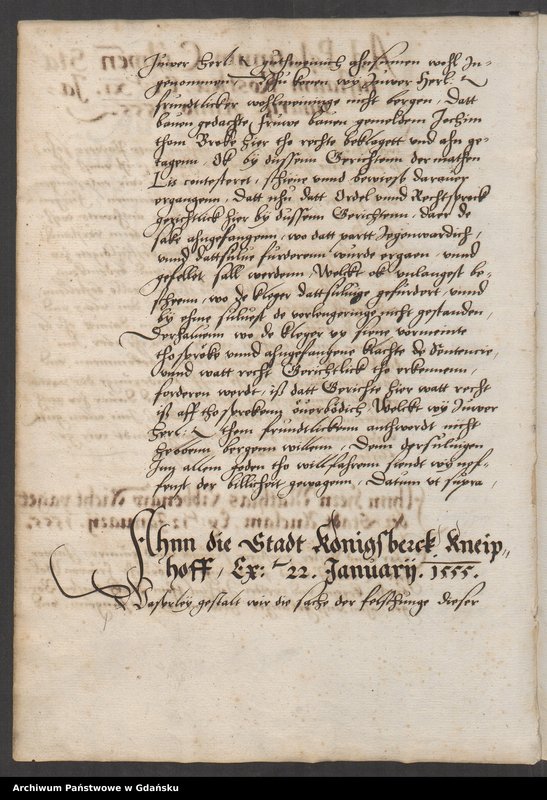 Juwer Herl. guthmeinich ahnsinnen wohl In-
genommen, Nhu konen wy Juwer Herl.
fruntlicker wohlmeninge nicht bergen, Datt
bauen gedachte fruwe bauen gemeldem Jochim
thom Broke hier tho rechte beklagett vnd ahn ge-
tagenn, Ok by dussem Gerichtenn der mathen
Lis contesteret, schiene vnnd bewiest darauer
ergangenn, Datt nhu datt Ordel vnnd Rechtsprock
gerichtlick hier by dussem Gerichtenn, daer de
sake ahngefangenn, wo datt partt Jegenwardich,
vnnd dattsulue furderenn wurde ergaen, vnnd
gefellet sall werdenn, Welckt ok vnlangest be-
scheenn, wo de kleger dattsuluige gefurdert, vnnd
by ehme suluest de vorlengeringe nicht gestanden,
Derhaluenn wo de kleger vp siene vormeinte
tho sproke vnnd ahngefangene klachte de Sententie,
vnnd watt recht Gerichtlick tho erkennenn,
forderen werdt, ist datt Gerichte hier watt recht
ist aff tho sprekenn ouerbodich Welckt wy Juwer
Herl. thom fruntlickenn anthwordt nicht
hebbenn bergenn willenn, Denn dersuluigen
Inn allem goden tho willfahrenn siendt wy nef-
fenst der billicheit gewagenn, Datum vt supra,
Ahnn die Stadt Königsberck Kneip,,
hoff, Ex: 22. January. 1555.
Waserley gestalt wir die sache der felschunge dieser
Archiwum Państwowe w Gdańsku